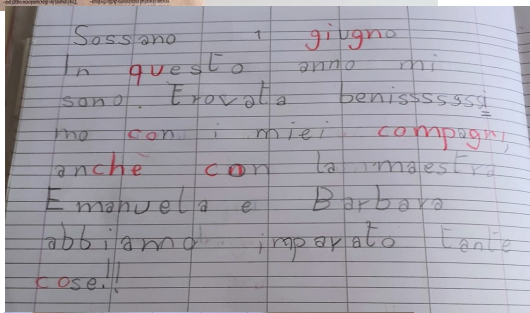 Sossano 1 giugno
In questo anno mi
sono. trovata benisssssssi
mo con i miei compagni,
anche con la maestra
Emanuela e Barbara
abbiamo imparato tante
cose!!